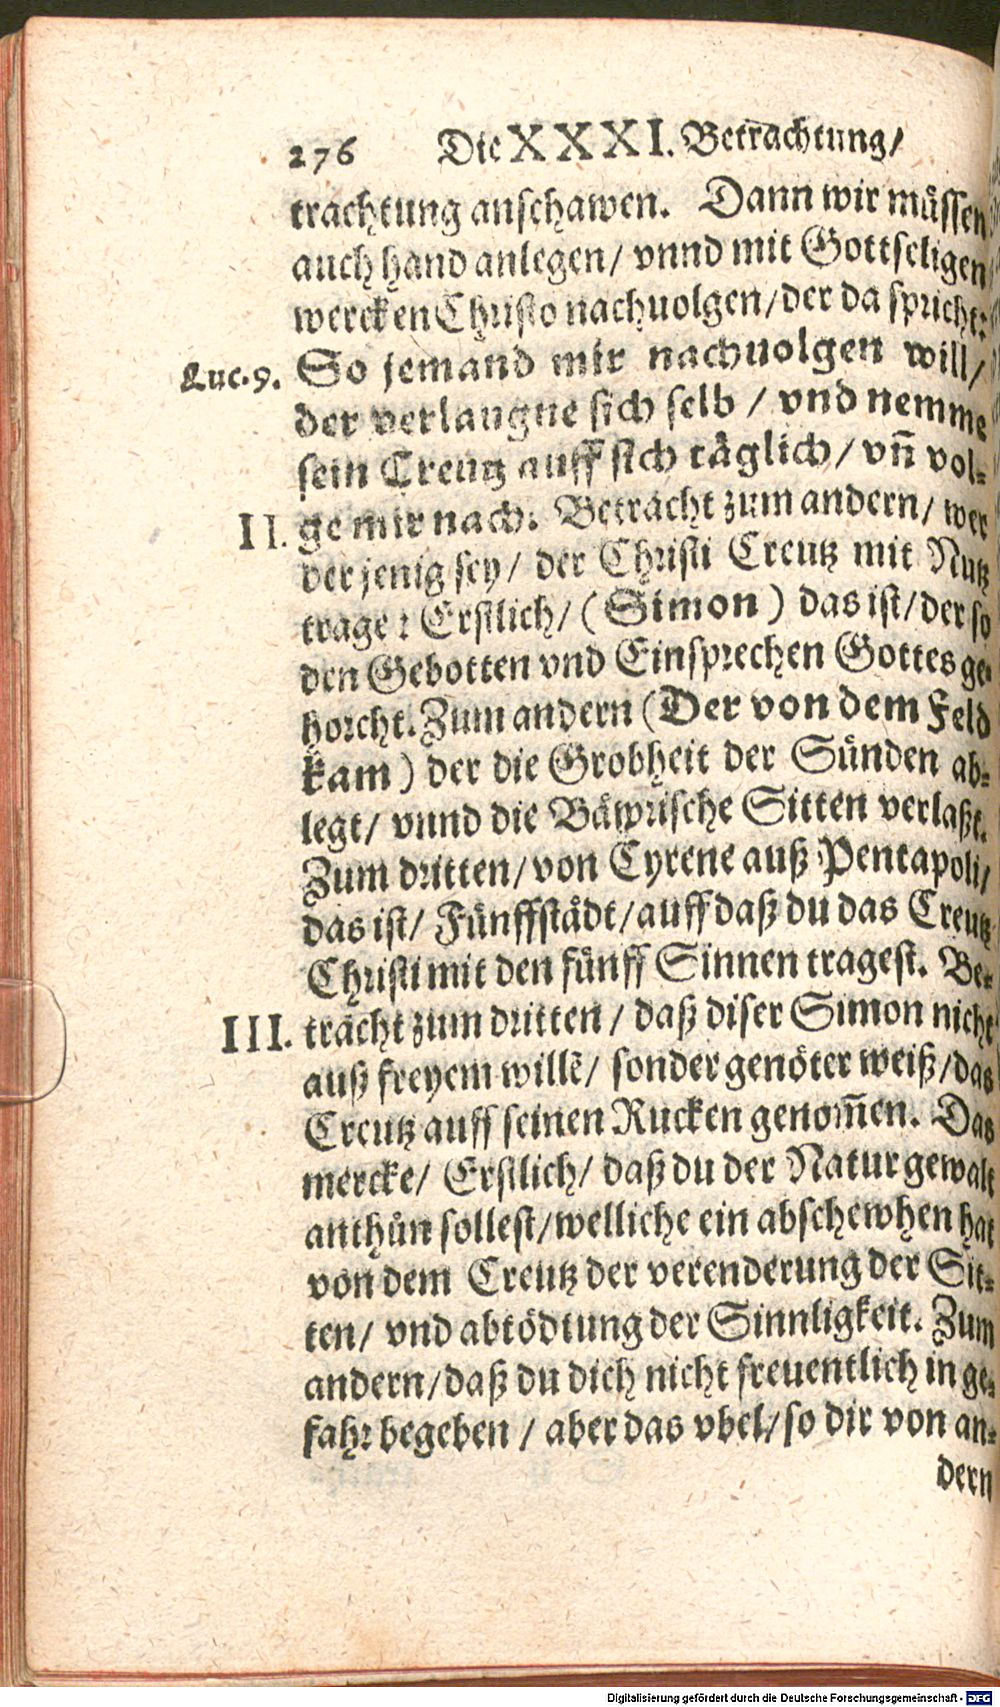 276 Die XXXI. Betrachtung/
trachtung anschawen. Dann wir müssen
auch hand anlegen/ vnnd mit Gottseligen
wercken Christo nachuolgen/ der da spricht:
Luc. 9. So jemand mir nachuolgen will/
der verlaugne sich selb / vnd nemme
sein Creutz auff sich täglich/ vn̄ vol-
II. ge mir nach. Betracht zum andern/ wer
der jenig sey/ der Christi Creutz mit Nutz
trage: Erstlich/ (Simon) das ist/ der so
den Gebotten vnd Einsprechen Gottes ge-
horcht. Zum andern (Der von dem Feld
kam) der die Grobheit der Sünden ab-
legt/ vnnd die Bäwrische Sitten verlaßt.
Zum dritten/ von Cyrene auß Pentapoli/
das ist/ Fünffstädt/ auff daß du das Creutz
Christi mit den fünff Sinnen tragest. Be-
III. tracht zum dritten / daß diser Simon nicht
auß freyem willē/ sonder genöter weiß/ das
Creutz auff seinen Rucken genom̄en. Das
mercke/ Erstlich/ daß du der Natur gewalt
anthůn sollest/ welliche ein abschewhen hat
von dem Creutz der verenderung der Sit-
ten/ vnd abtödtung der Sinnligkeit. Zum
andern/ daß du dich nicht freuentlich in ge-
fahr begeben / aber das vbel/ so dir von an-
dern
Digitalisierung gefördert durch die Deutsche Forschungsgemeinschaft - DFG